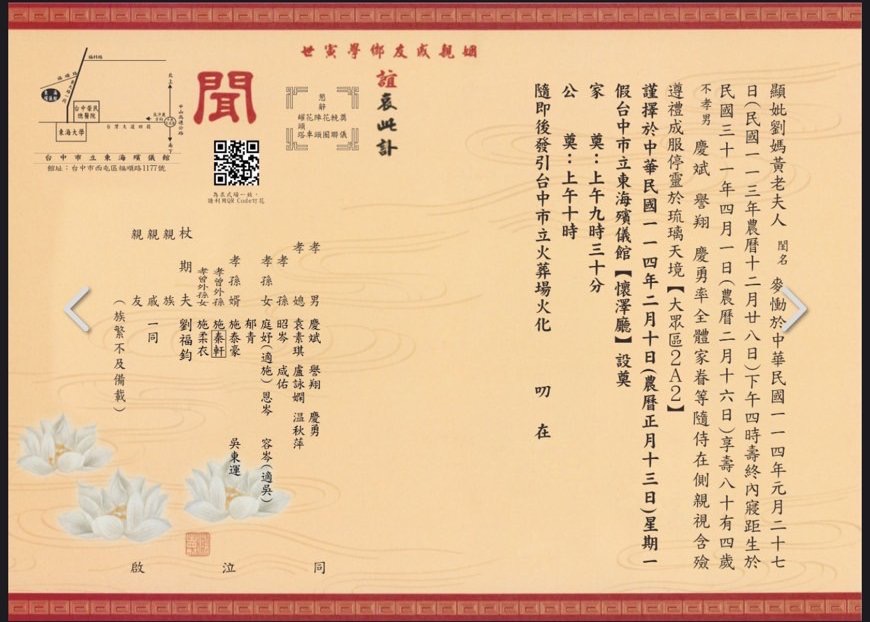 顯妣劉媽黃老夫人 閨名 麥慟於中華民國一一四年元月二十七
日(民國一一三年農曆十二月廿八日)下午四時壽終內寢距生於
民國三十一年四月一日(農曆二月十六日)享壽八十有四歲
不孝男 慶斌 譽翔 慶勇率全體家眷等隨侍在側親視含殮
遵禮成服停靈於琉璃天境【大眾區2A2】
謹擇於中華民國一一四年二月十日(農曆正月十三日)星期一
假台中市立東海殯儀館【懷澤廳】設奠
家 奠:上午九時三十分
公 奠:上午十時
隨即後發引台中市立火葬場火化 叨 在
姻親戚友鄉學寅世
誼哀此訃
聞
懇辭
奠輓花陣花罐頭
聯圈頭車塔
為喪式場一致,
請利用QR Code訂花
福科路
福順路
台中榮民
總醫院
東海大學
台灣大道四段
中山高速公路
北上
南下
台中市立東海殯儀館
館址:台中市西屯區福順路1177號
孝男 慶斌 譽翔 慶勇 同
孝媳 袁素琪 盧詠嫻 温秋萍
孝孫 昭岑 成佑
孝孫女 庭妤(適施)恩岑 容岑(適吳)
郁青
孝孫婿 施泰豪 吳東運 泣
孝曾外孫 施秦軒
孝曾外孫女 施柔衣
杖期夫 劉福鈞
親族
親戚 一同
親友 啟
(族繁不及備載)